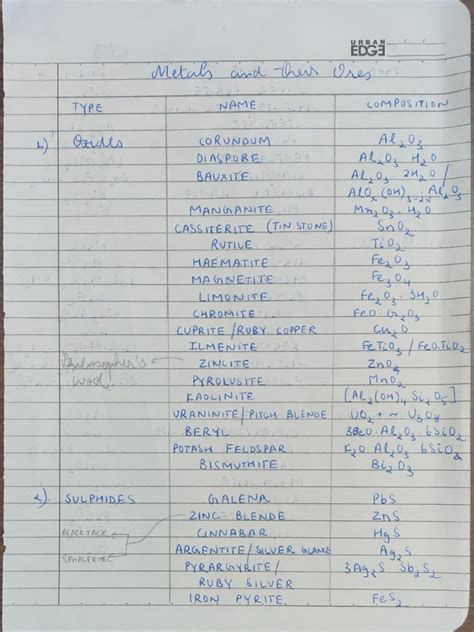 URBAN
EDGE
Metals and their Ores
TYPE NAME COMPOSITION
1) Oxides CORUNDUM Al₂O₃
DIASPORE Al₂O₃ H₂O
BAUXITE Al₂O₃ 2H₂O /
AlOₓ(OH)₃₋₂ₓ Al₂O₃
MANGANITE Mn₂O₃ · H₂O
CASSITERITE (TIN STONE) SnO₂
RUTILE TiO₂
HAEMATITE Fe₂O₃
MAGNETITE Fe₃O₄
LIMONITE Fe₂O₃ · 3H₂O
CHROMITE FeO · Cr₂O₃
CUPRITE / RUBY COPPER Cu₂O
ILMENITE FeTiO₃ / FeO.TiO₂
Philosopher's wool ZINCITE ZnO
PYROLUSITE MnO₂
KAOLINITE [Al₂(OH)₄ Si₂O₅]
URANINITE / PITCH BLENDE UO₂ + ~ U₃O₈
BERYL 3BeO·Al₂O₃·6SiO₂
POTASH FELDSPAR K₂O Al₂O₃ 6SiO₂
BISMUTHITE Bi₂O₃
2) SULPHIDES GALENA PbS
ZINC BLENDE ZnS
BLACKJACK CINNABAR HgS
ARGENTITE / SILVER GLANCE Ag₂S
SPHALERITE PYRARGYRITE / 3Ag₂S Sb₂S₂
RUBY SILVER
IRON PYRITE FeS₂